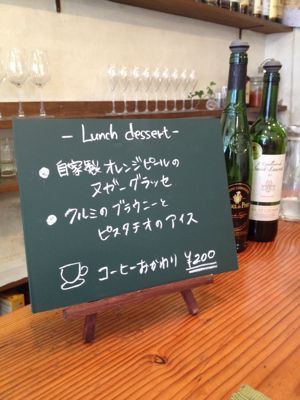 - Lunch dessert -
● 自家製 オレンジピールの
ヌガーグラッセ
● クルミのブラウニーと
ピスタチオのアイス
コーヒーおかわり ¥200